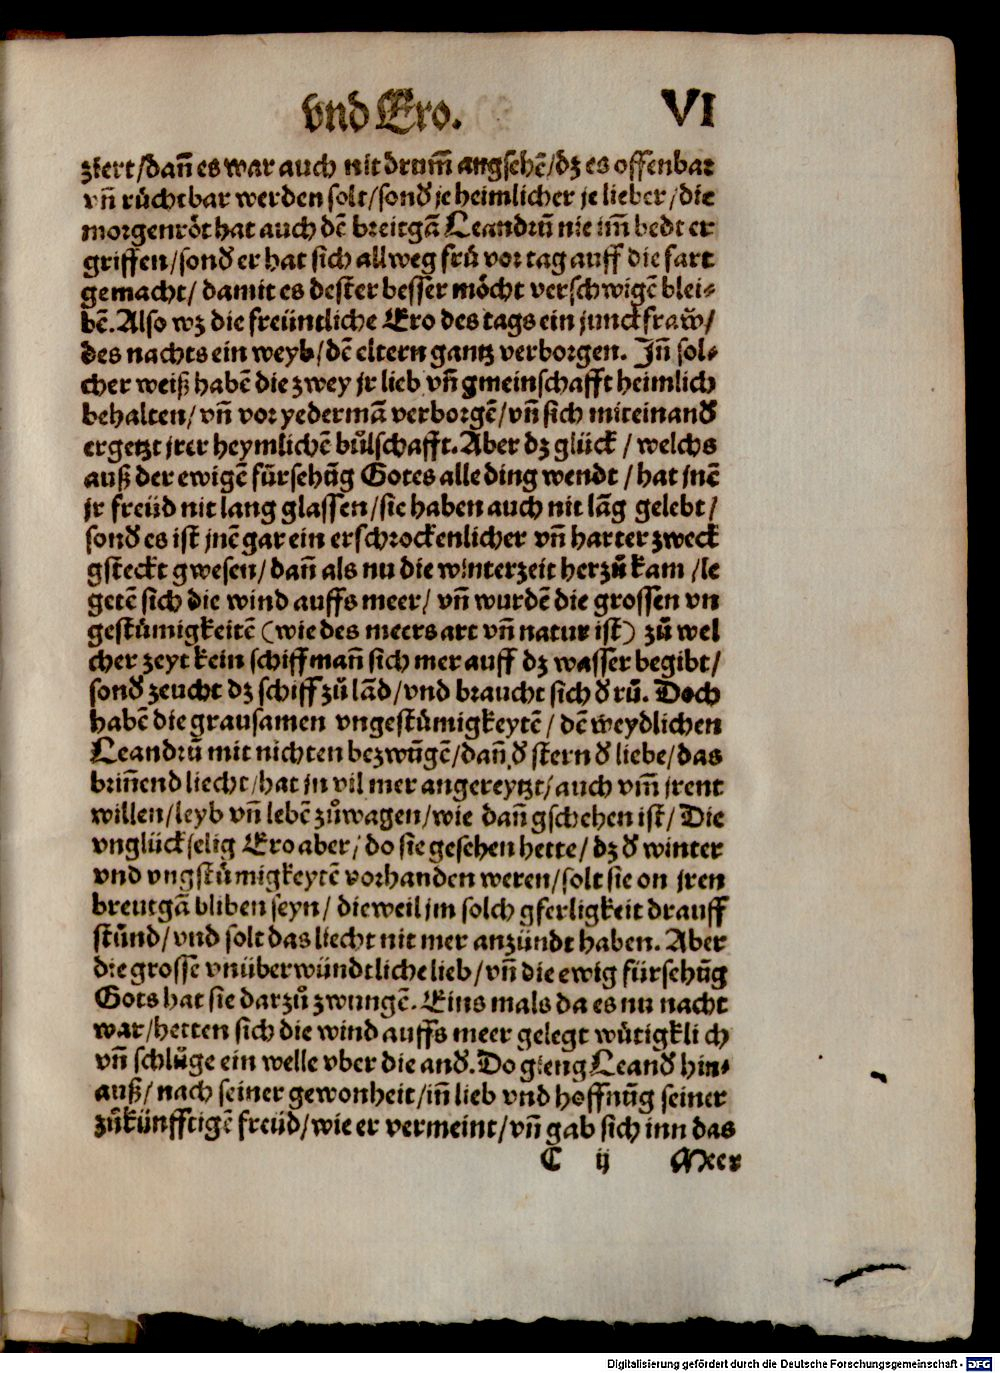 vnd Ero. VI
ziert/dañ es war auch nit drum̃ angsehẽ/dz es offenbar
vñ rüchtbar werden solt/sonđ je heimlicher je lieber/die
morgenröt hat auch dẽ breitgã Leandrũ nie im̃ bedt er
griffen/sonđ er hat sich allweg frů vor tag auff die fart
gemacht/ damit es dester besser möcht verschwigẽ blei-
bẽ. Also wz die freüntliche Ero des tags ein junckfraw̃/
des nachts ein weyb/dẽ eltern gantz verborgen. Iñ sol-
cher weiß habẽ die zwey jr lieb vñ gmeinschafft heimlich
behalten/ vñ vor yedermã verborgẽ/vñ sich miteinanđ
ergetzt jrer heymlichẽ bůlschafft. Aber dz glück / welchs
auß der ewigẽ fürsehũg Gotes alle ding wendt / hat jnẽ
jr freüd nit lang glassen/sie haben auch nit lãg gelebt/
sonđ es ist jnẽ gar ein erschrockenlicher vñ harter zweck
gsteckt gwesen/dañ als nu die winterzeit herzů kam /le
getẽ sich die wind auffs meer/ vñ wurdẽ die grossen vn
gestümigkeitẽ (wie des meers art vñ natur ist) zů wel
cher zeyt kein schiffmañ sich mer auff dz wasser begibt/
sonđ zeucht dz schiff zů lãd/vnd braucht sich đ rů. Doch
habẽ die grausamen vngestümigkeytẽ/ dẽ weydlichen
Leandrũ mit nichten bezwũgẽ/dañ đ stern đ liebe/das
briñend liecht/hat jn vil mer angereytzt/ auch vm̃ jrent
willen/leyb vñ lebẽ zůwagen/wie dañ gschehen ist/ Die
vnglückselig Ero aber/ do sie gesehen hette/ dz đ winter
vnd vngstümigkeytẽ vorhanden weren/solt sie on jren
breutgã bliben seyn/ dieweil jm solch gferligkeit drauff
stünd/vnd solt das liecht nit mer anzündt haben. Aber
die grosse vnüberwündtliche lieb/vñ die ewig fürsehũg
Gots hat sie darzů zwungẽ. Eins mals da es nu nacht
war/hetten sich die wind auffs meer gelegt wütigkli ch
vñ schlůge ein welle vber die anđ. Do gieng Leanđ hin-
auß/ nach seiner gewonheit/iñ lieb vnd hoffnũg seiner
zůkünfftigẽ freüd/wie er vermeint/vñ gab sich inn das
C ij Meer
Digitalisierung gefördert durch die Deutsche Forschungsgemeinschaft - DFG